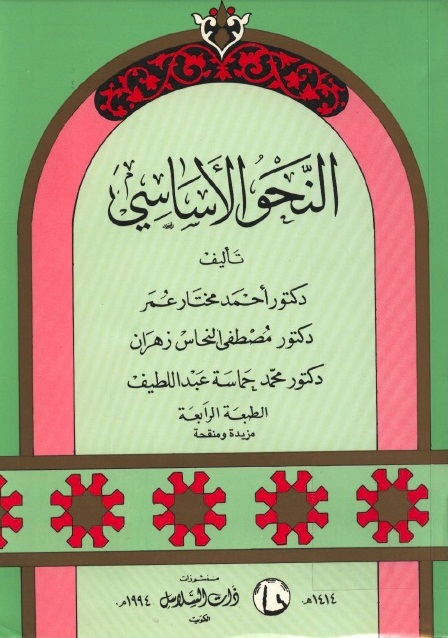 النَّحْوُ الأَسَاسِيّ
تأليف
دكتور أحمد مختار عمر
دكتور مصطفى النحاس زهران
دكتور محمد حماسة عبد اللطيف
الطبعة الرابعة
مزيدة ومنقحة
منشورات
١٤١٤هـ. ذات السلاسل ١٩٩٤م.
الكويت